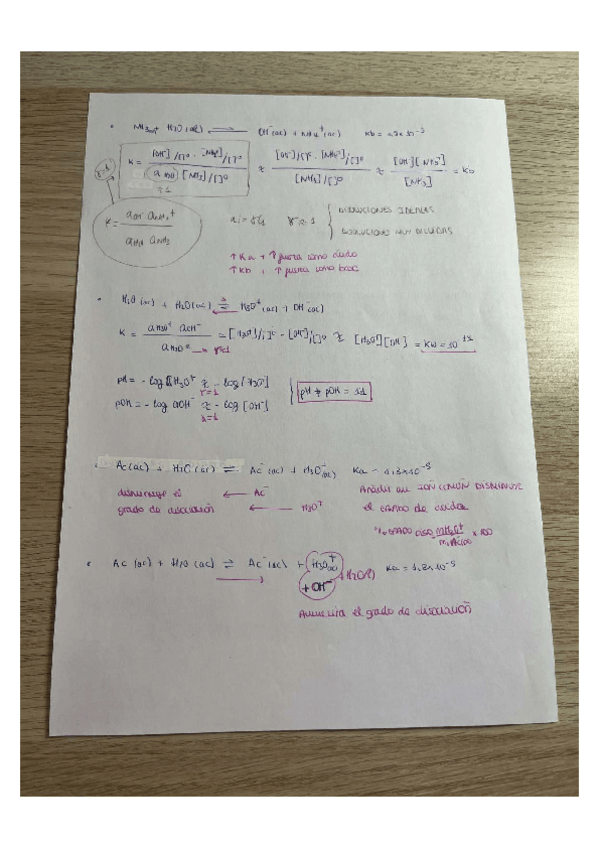 NH3(ac) + H2O(ac) ⇌ OH⁻(ac) + NH4⁺(ac)
K = [OH⁻]/[]⁰ · [NH4⁺]/[]⁰ / a H2O [NH3]/[]⁰ ≈ [OH⁻]/[]⁰ · [NH4⁺]/[]⁰ / [NH3]/[]⁰ ≈ [OH⁻][NH4⁺] / [NH3] = Kb
≈1
γ≈1
K = aOH⁻ aNH4⁺ / aH2O aNH3
γ ≈ 1 { DISOLUCIONES IDEALES
DISOLUCIONES MUY DILUIDAS
↑ Ka , ↑ fuerza como ácido
↑ Kb , ↑ fuerza como base
H2O (ac) + H2O(ac) ⇌ H3O⁺(ac) + OH⁻(ac)
K = aH3O⁺ aOH⁻ / aH2O = [H3O⁺]/[]⁰ - [OH⁻]/[]⁰ ≈ [H3O⁺][OH⁻] = Kw = 10
γ=1
pH = - log [H3O⁺ ≈ - log [H3O⁺]
γ=1
pOH = - log aOH⁻ ≈ - log [OH⁻]
γ=1
pH + pOH = 14
Ac(ac) + H2O(ac) ⇌ Ac⁻(ac) + H3O⁺(ac) Ka = 1,8×10⁻⁵
disminuye el ← Ac⁻ Añadir un IÓN COMÚN DISMINUYE
grado de disociación ← H3O⁺ el grado de
× 100
Ac (ac) + H2O (ac) ⇌ Ac⁻(ac) + H3O⁺(ac) Ka = 1,8×10⁻⁵
→ + OH⁻ → H2O(l)
Aumenta el grado de disociación